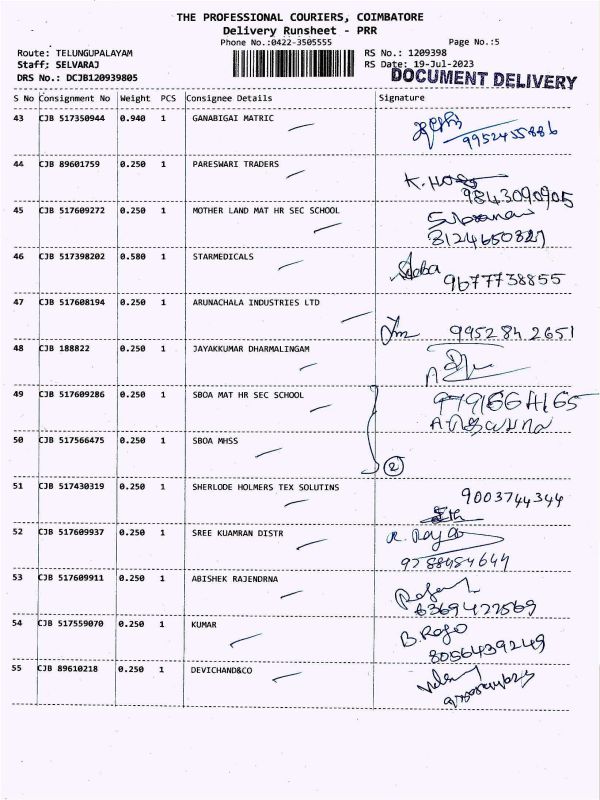 THE PROFESSIONAL COURIERS, COIMBATORE
Delivery Runsheet - PRR
Phone No.:0422-3505555 Page No.:5
Route: TELUNGUPALAYAM RS No.: 1209398
Staff; SELVARAJ RS Date: 19-Jul-2023
DRS No.: DCJB120939805 DOCUMENT DELIVERY
S No Consignment No Weight PCS Consignee Details Signature
43 CJB 517350944 0.940 1 GANABIGAI MATRIC
9952455886
44 CJB 89601759 0.250 1 PARESWARI TRADERS
9843090905
45 CJB 517609272 0.250 1 MOTHER LAND MAT HR SEC SCHOOL
8124650827
46 CJB 517398202 0.580 1 STARMEDICALS
9677738855
47 CJB 517608194 0.250 1 ARUNACHALA INDUSTRIES LTD
9952842651
48 CJB 188822 0.250 1 JAYAKKUMAR DHARMALINGAM
49 CJB 517609286 0.250 1 SBOA MAT HR SEC SCHOOL
50 CJB 517566475 0.250 1 SBOA MHSS
2
51 CJB 517430319 0.250 1 SHERLODE HOLMERS TEX SOLUTINS
9003744344
52 CJB 517609937 0.250 1 SREE KUAMRAN DISTR
R. Raja
9788484644
53 CJB 517609911 0.250 1 ABISHEK RAJENDRNA
6369477569
54 CJB 517559070 0.250 1 KUMAR
B. Rajo
8056439249
55 CJB 89610218 0.250 1 DEVICHAND&CO